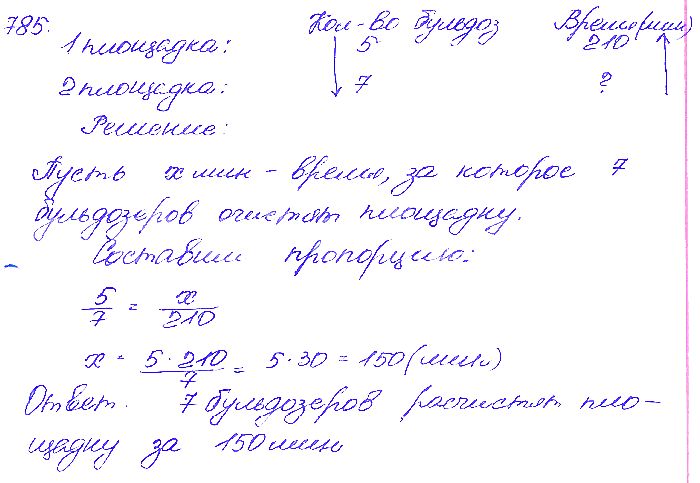 785. Кол-во бульдоз Время(мин)
1 площадка: 5 210
2 площадка: 7 ?
Решение:
Пусть x мин - время, за которое 7
бульдозеров очистят площадку.
Составим пропорцию:
5/7 = x/210
x = 5·210/7 = 5·30 = 150 (мин)
Ответ. 7 бульдозеров расчистят пло-
щадку за 150 мин